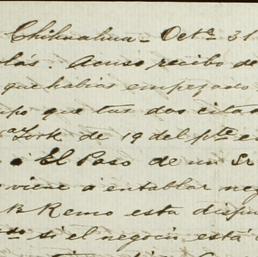 Chihuahua - Octe. 31
lás. Acuso recibo de
que habias empezado
po que tus dos citad
York de 19 del pte. e
a El Paso de un Sr
viene a entablar neg
B Remo esta dispu
si el negocio está